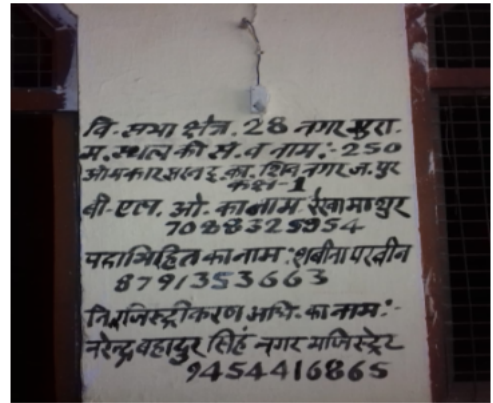 वि. सभा क्षेत्र. 28 नगर मुरा.
म. स्थल की सं. व नाम :- 250
ओमकार सरन इ. का. शिव नगर ज. पुर
कक्ष-1
बी-एल. ओ. का नाम रेखा माथुर
7088325954
पदाभिहित का नाम : शबीना परवीन
8791353663
नि. रजिस्ट्रीकरण अधि. का नाम :-
नरेन्द्र बहादुर सिंह नगर मजिस्ट्रेट
9454416865